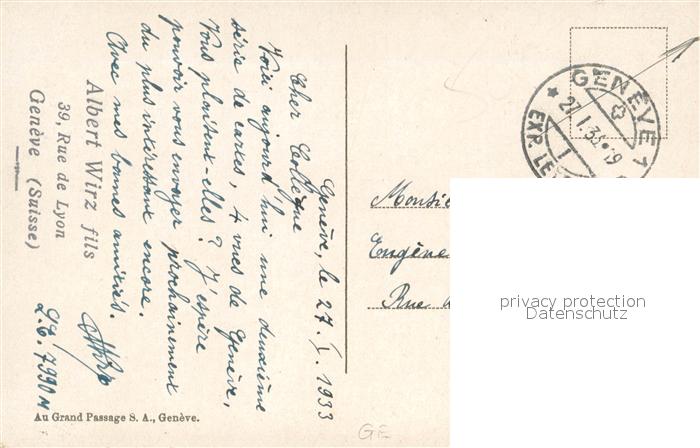 Genève, le 27. I. 1933
Cher Collègue
Voici aujourd'hui une deuxième
série de cartes, 4 vues de Genève,
Vous plaisent-elles? J'espère
pouvoir vous envoyer prochainement
du plus intéressant encore.
Avec mes bonnes amitiés.
AWirz
Albert Wirz fils
39, Rue de Lyon
Genève (Suisse)
Au Grand Passage S. A., Genève.
GENÈVE 1
27.I.33
EXP. LE
Monsie
Eugène
Rue
privacy protection
Datenschutz
GE